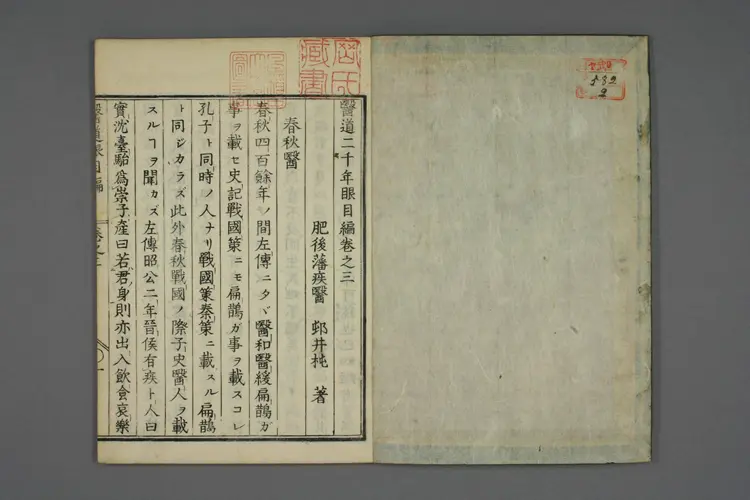 醫道二千年眼目編卷之三
肥後藩疾醫　邨井杶　著
春秋醫
春秋四百餘年ノ間左傳ニタヾ醫和醫緩扁鵲ガ
事ヲ載セ史記戰國策ニモ扁鵲ガ事ヲ載スコレ
孔子ト同時ノ人ナリ戰國策秦策ニ載スル扁鵲
ト同ジカラズ此外春秋戰國ノ際子史醫人ヲ載
スルヿヲ聞カズ左傳昭公二年晉侯有疾ト人曰
實沈臺駘爲祟子產曰若君身則亦出入飮食哀樂
岡氏藏書
582
2